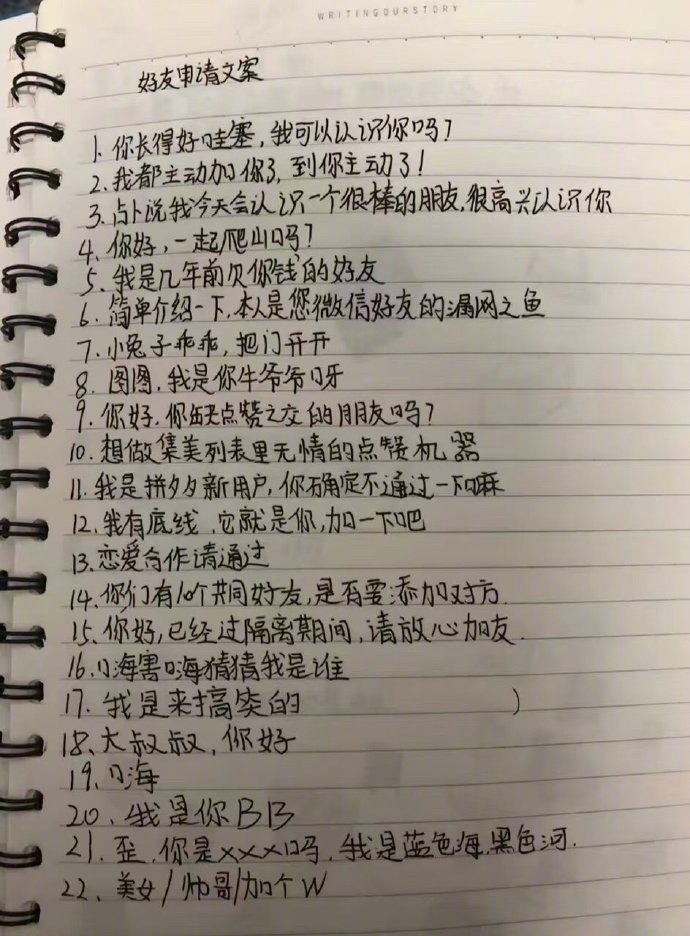 WRITINGOURSTORY
好友申请文案
1、你长得好哇塞，我可以认识你吗？
2、我都主动加你了，到你主动了！
3、占卜说我今天会认识一个很棒的朋友，很高兴认识你
4、你好，一起爬山吗？
5、我是几年前欠你钱的好友
6、简单介绍一下，本人是您微信好友的漏网之鱼
7、小兔子乖乖，把门开开
8、图图，我是你牛爷爷呀
9、你好，你缺点赞之交的朋友吗？
10、想做集美列表里无情的点赞机器
11、我是拼夕夕新用户，你确定不通过一下嘛
12、我有底线，它就是你，加一下吧
13、恋爱合作请通过
14、你们有10个共同好友，是否要添加对方.
15、你好，已经过隔离期间，请放心加友.
16、嗨害嗨猜猜我是谁
17、我是来搞笑的 )
18、大叔叔，你好
19、嗨
20、我是你BB
21、歪，你是xxx吗，我是蓝色海，黑色河.
22、美女/帅哥/加个W